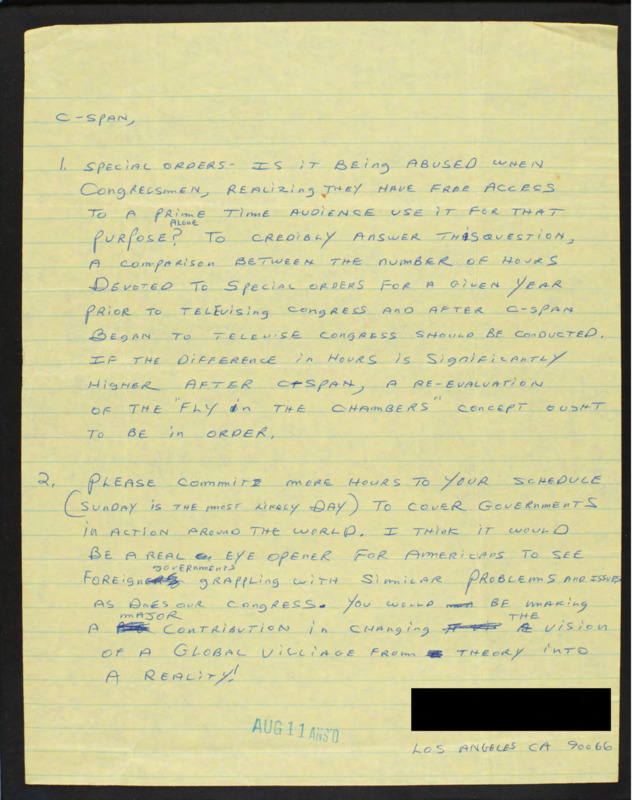 C-SPAN,
1. SPECIAL ORDERS- IS IT BEING ABUSED WHEN
CONGRESSMEN, REALIZING THEY HAVE FREE ACCESS
TO A PRIME TIME AUDIENCE USE IT FOR THAT
ALONE
PURPOSE? TO CREDIBLY ANSWER THIS QUESTION,
A COMPARISON BETWEEN THE NUMBER OF HOURS
DEVOTED TO SPECIAL ORDERS FOR A GIVEN YEAR
PRIOR TO TELEVISING CONGRESS AND AFTER C-SPAN
BEGAN TO TELEVISE CONGRESS SHOULD BE CONDUCTED.
IF THE DIFFERENCE IN HOURS IS SIGNIFICANTLY
HIGHER AFTER C-SPAN, A RE-EVALUATION
OF THE "FLY IN THE CHAMBERS" CONCEPT OUGHT
TO BE IN ORDER.
2. PLEASE COMMIT MORE HOURS TO YOUR SCHEDULE
(SUNDAY IS THE MOST LIKELY DAY) TO COVER GOVERNMENTS
IN ACTION AROUND THE WORLD. I THINK IT WOULD
BE A REAL EYE OPENER FOR AMERICANS TO SEE
GOVERNMENTS
FOREIGN GRAPPLING WITH SIMILAR PROBLEMS AND ISSUES
AS DOES OUR CONGRESS. YOU WOULD BE MAKING
MAJOR THE
A CONTRIBUTION IN CHANGING VISION
OF A GLOBAL VILLIAGE FROM THEORY INTO
A REALITY!
AUG 11 ANS'D
LOS ANGELES CA 90066